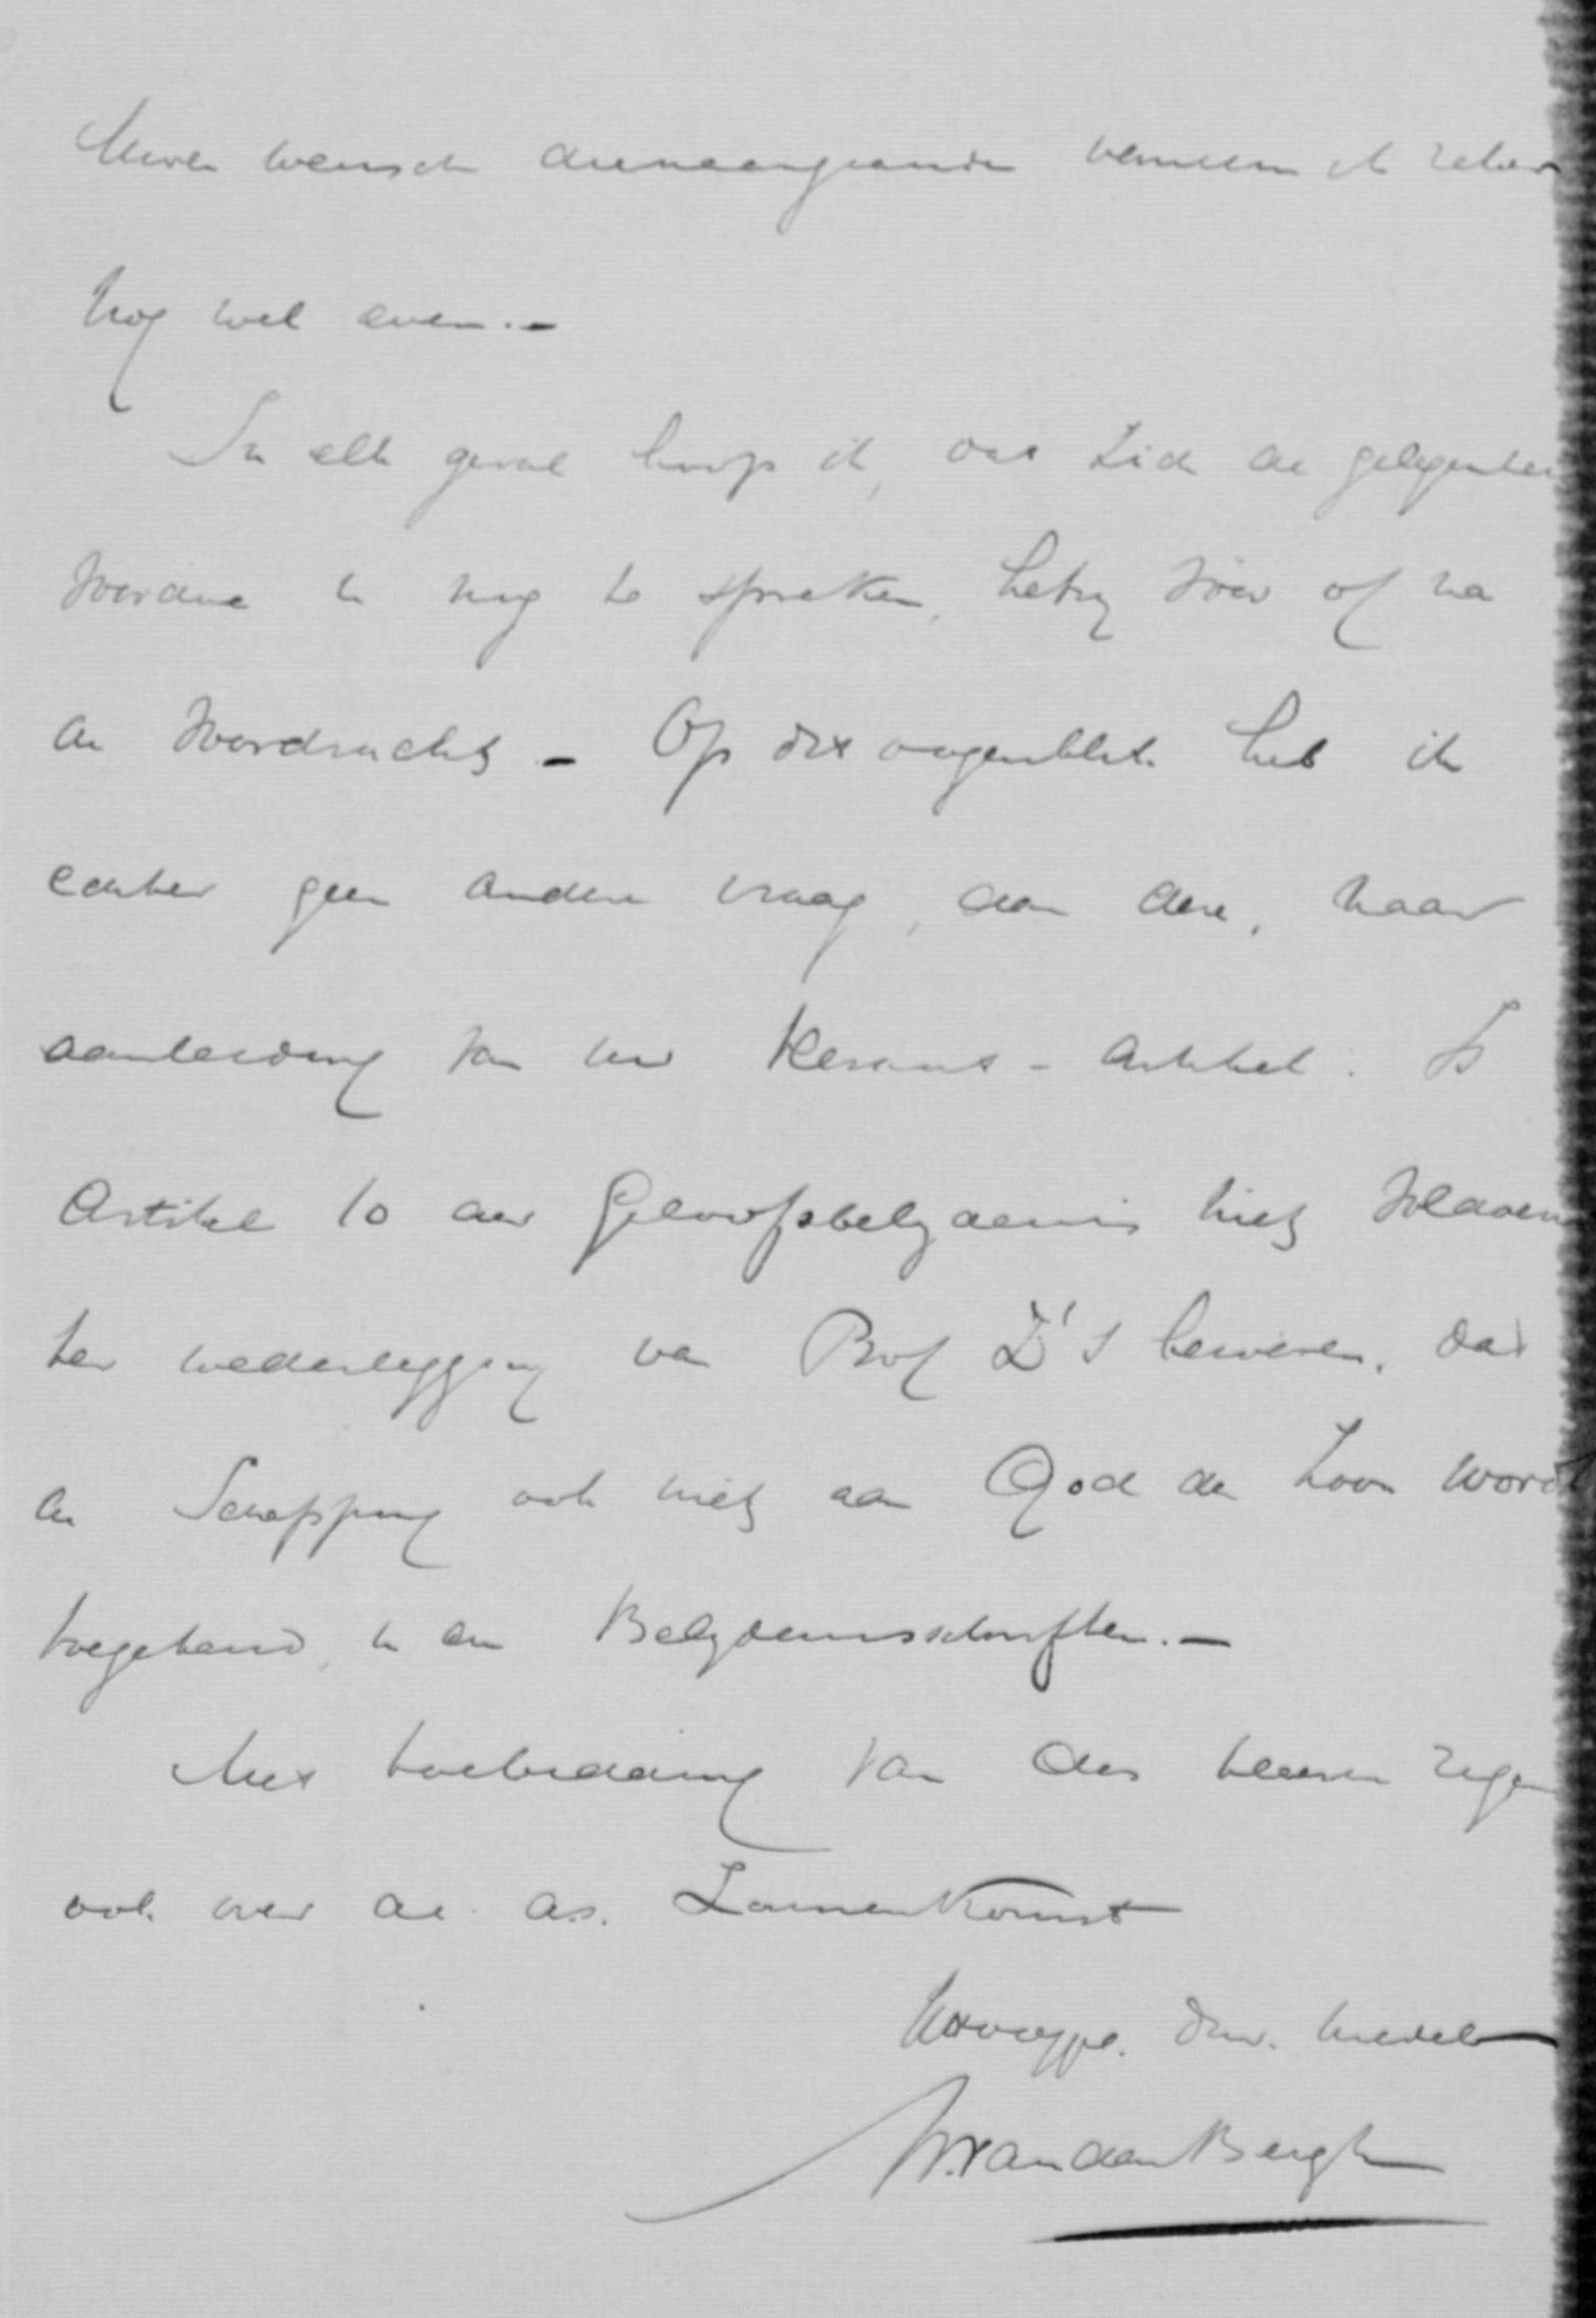 Uwen wensch dienaangaande verneem ik zeker
nog wel even.-
In elk geval hoop ik, dat zich de gelegenhei
voordoe U nog te spreken, hetzij vóór of na
de voordracht - Op dit oogenblik heb ik
echter geen andere vraag, dan deze, naar
aanleiding van uw Heraut-artikel: Is
Artikel 10 der Geloofsbelydenis niet voldoen
ter wederlegging van Prof Z's beweren, dat
de Schepping ook niet aan God de Zoon wordt
toegekend, in den Belydenisschriften.-
Met toebidding van des Heeren zegen
ook over de a.s. Samenkomst
Hoogach. dw.
W. van den Bergh